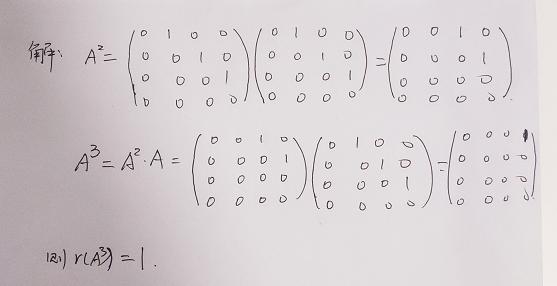 解: A²= (0 1 0 0; 0 0 1 0; 0 0 0 1; 0 0 0 0) (0 1 0 0; 0 0 1 0; 0 0 0 1; 0 0 0 0) = (0 0 1 0; 0 0 0 1; 0 0 0 0; 0 0 0 0).
A³ = A²·A = (0 0 1 0; 0 0 0 1; 0 0 0 0; 0 0 0 0) (0 1 0 0; 0 0 1 0; 0 0 0 1; 0 0 0 0) = (0 0 0 1; 0 0 0 0; 0 0 0 0; 0 0 0 0).
则 r(A³) = 1.